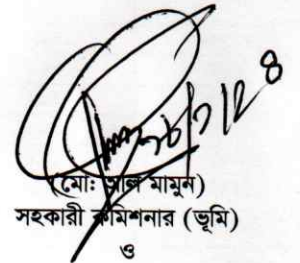 (মো: আল মামুন)
সহকারী কমিশনার (ভূমি)
ও